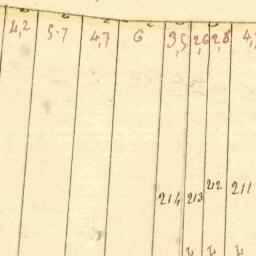 4,2 5.7 4,7 6 3,5 2,6 2,8
214 213 212 211